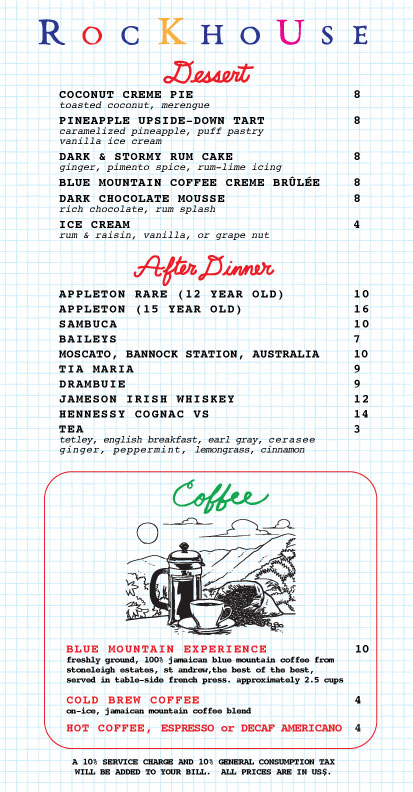 RocKHoUSE
Dessert
COCONUT CREME PIE 8
toasted coconut, merengue
PINEAPPLE UPSIDE-DOWN TART 8
caramelized pineapple, puff pastry
vanilla ice cream
DARK & STORMY RUM CAKE 8
ginger, pimento spice, rum-lime icing
BLUE MOUNTAIN COFFEE CREME BRÛLÉE 8
DARK CHOCOLATE MOUSSE 8
rich chocolate, rum splash
ICE CREAM 4
rum & raisin, vanilla, or grape nut
After Dinner
APPLETON RARE (12 YEAR OLD) 10
APPLETON (15 YEAR OLD) 16
SAMBUCA 10
BAILEYS 7
MOSCATO, BANNOCK STATION, AUSTRALIA 10
TIA MARIA 9
DRAMBUIE 9
JAMESON IRISH WHISKEY 12
HENNESSY COGNAC VS 14
TEA 3
tetley, english breakfast, earl gray, cerasee
ginger, peppermint, lemongrass, cinnamon
Coffee
BLUE MOUNTAIN EXPERIENCE 10
freshly ground, 100% jamaican blue mountain coffee from
stoneleigh estates, st andrew,the best of the best,
served in table-side french press. approximately 2.5 cups
COLD BREW COFFEE 4
on-ice, jamaican mountain coffee blend
HOT COFFEE, ESPRESSO or DECAF AMERICANO 4
A 10% SERVICE CHARGE AND 10% GENERAL CONSUMPTION TAX
WILL BE ADDED TO YOUR BILL. ALL PRICES ARE IN US$.